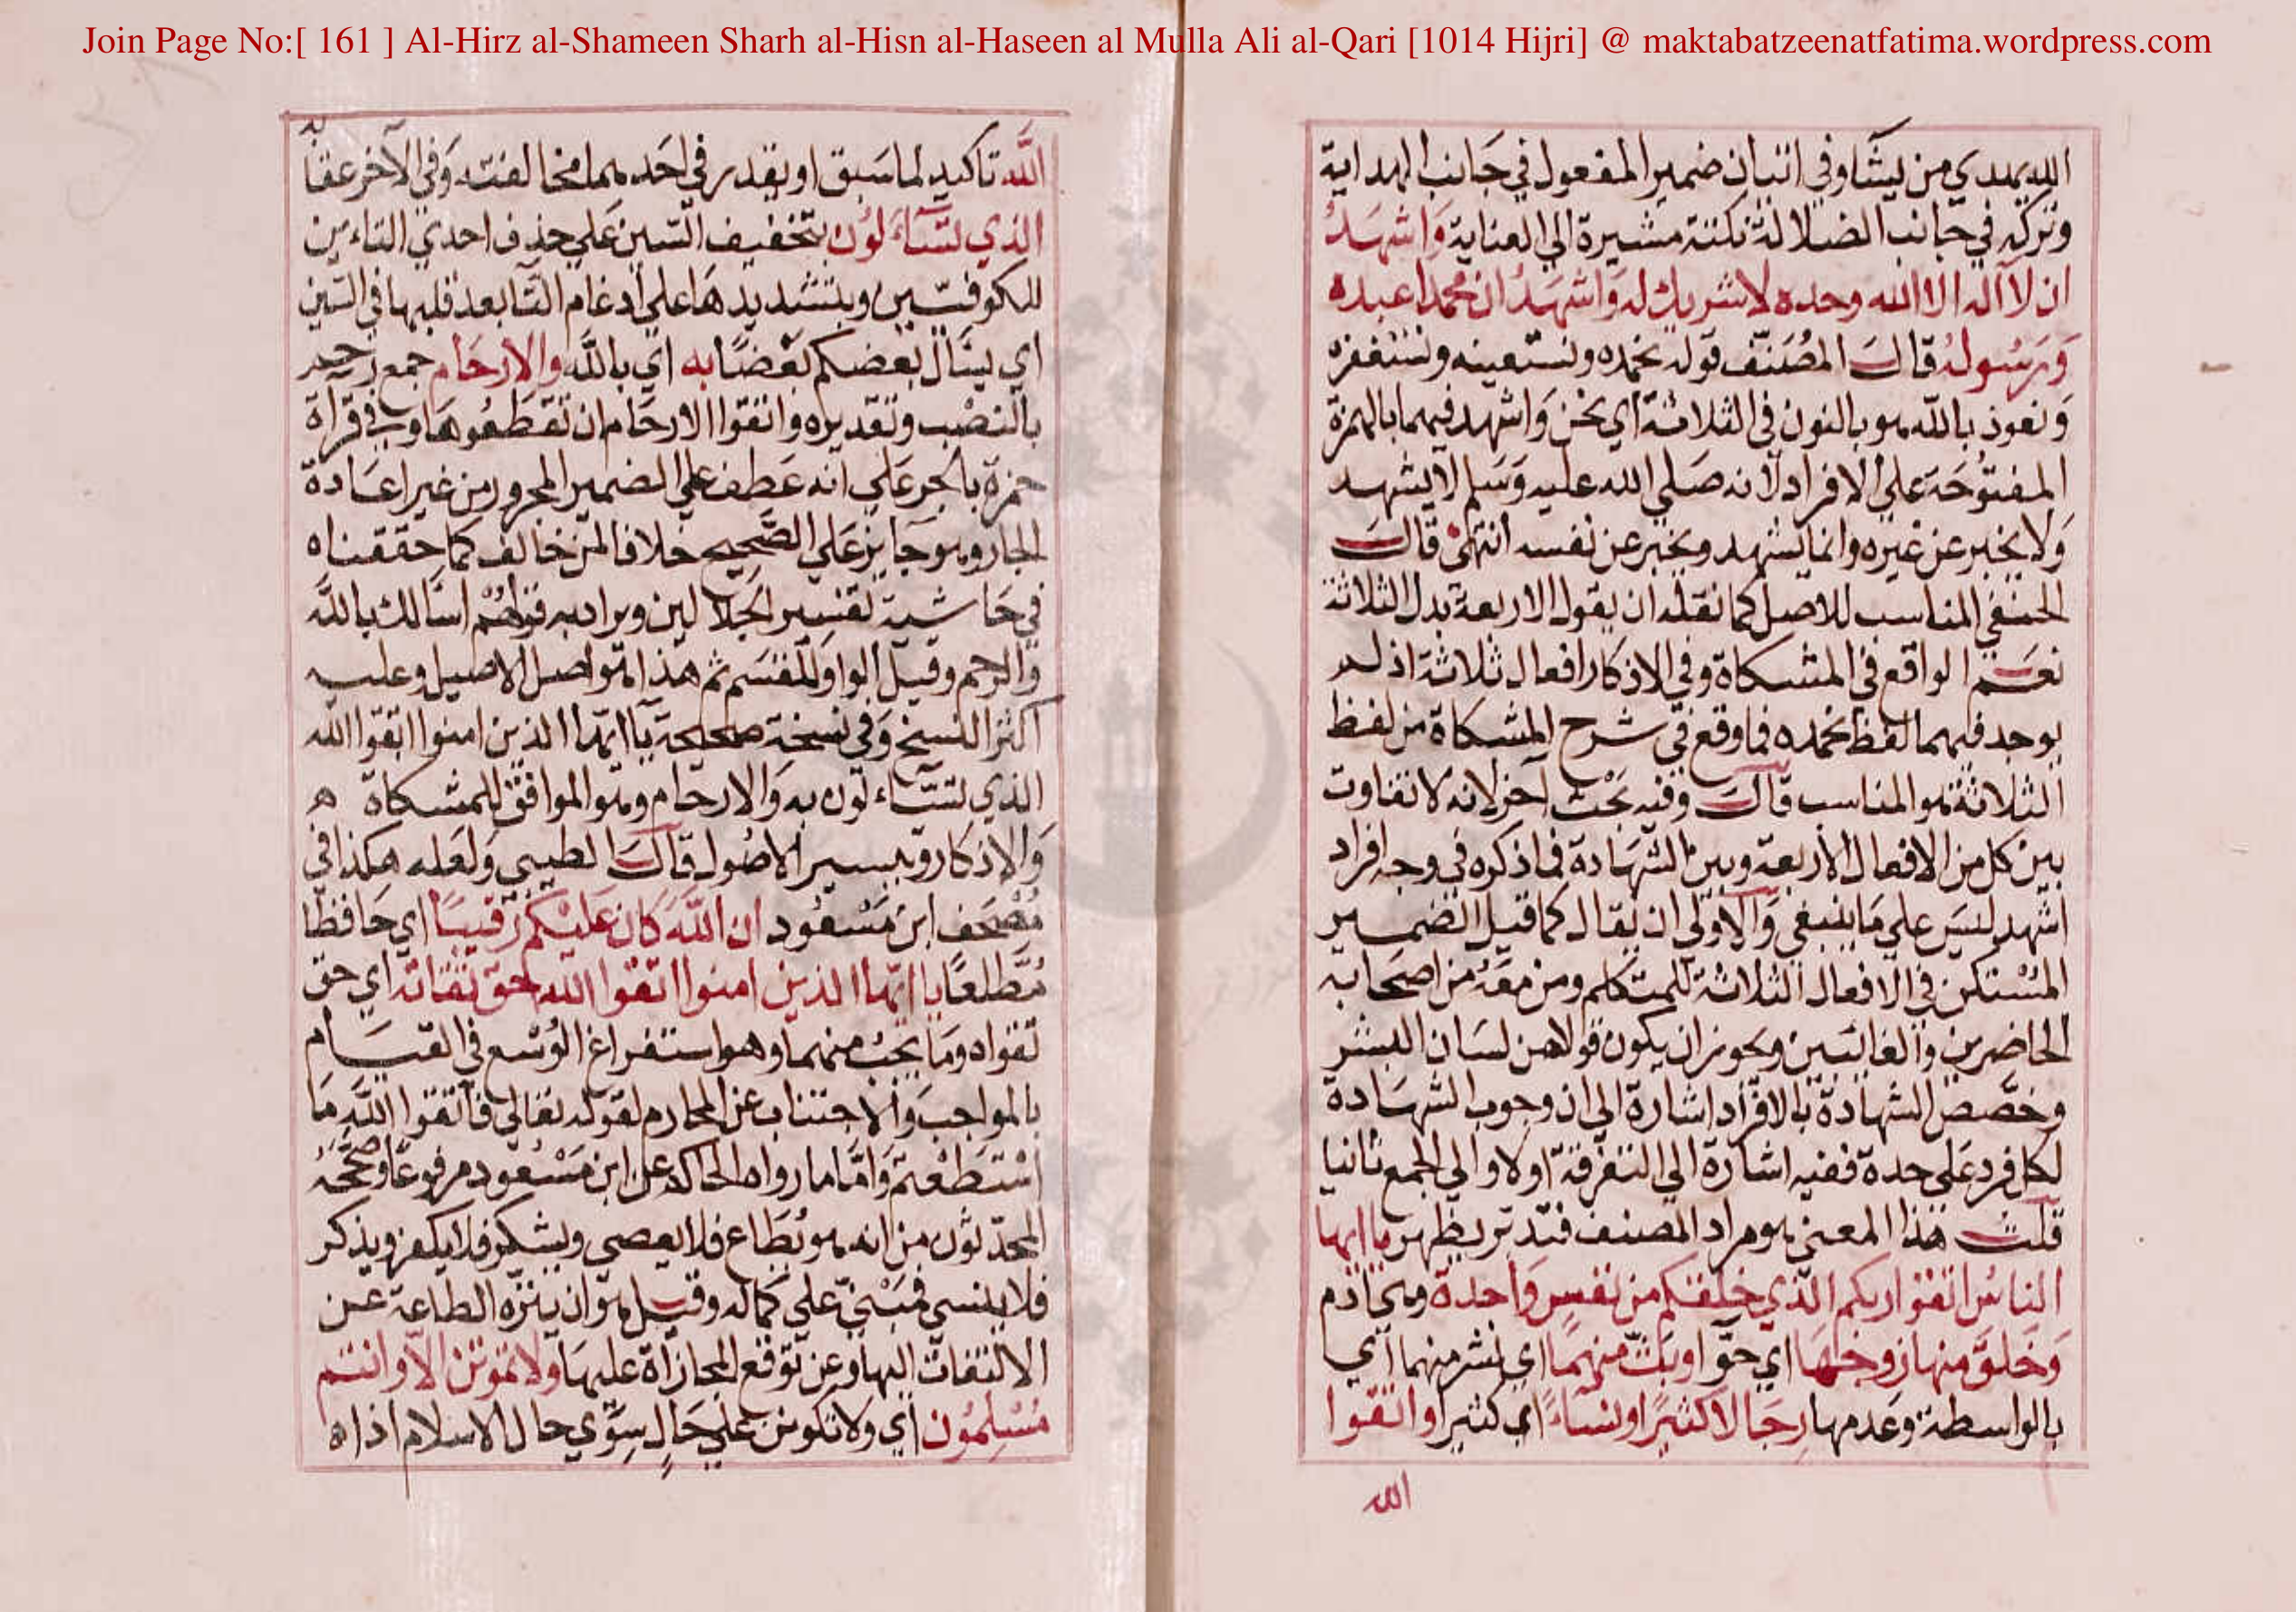 Join Page No:[ 161 ] Al-Hirz al-Shameen Sharh al-Hisn al-Haseen al Mulla Ali al-Qari [1014 Hijri] @ maktabatzeenatfatima.wordpress.com
الله يهدي من يشا وفي اثبات ضمير المفعول في جانب الهداية
وتركه في جانب الضلالة نكتة مشيرة الي العناية وَاشهَدُ
ان لا اله الا الله وحده لا شريك له وَاشهَدُ ان محمدا عبده
وَرَسُولُه قالَ المُصَنّف قوله نحمده ونستعينه ونستغفره
وَنعوذ بالله هو بالنون في الثلاثة اي نحن وَاشهد فيهما بالهمزة
المفتوُحَة علي الافراد لانه صَلي الله عليه وَسَلم لا يشهد
وَلا يخبر عن غيره وانما يشهد ويخبر عن نفسه انتهىٰ قالَ
الحنفي المناسب للاصل كما نقله ان يقول الاربعة بدل الثلاثة
نعَم الواقع في المشكاة وفي الاذكار افعال ثلاثة اذ لم
يوجد فيهما لفظ نحمده فما وقع في شرح المشكاة من لفظ
الثلاثة هو المناسب قالَ وفيه بَحْث اخر لانه لا تفاوت
بين كل من الافعال الاربعة وبين الشهَادة فما ذكره في وجه افراد
اشهد لَيسَ علي مَا ينبغي وَالاولي ان يقال كما قيل الضمير
المُسْتكن في الافعال الثلاثة للمتكلم ومن معَهُ من اصحَابه
الحاضرين والغائبين ويجوز ان يكون قولا من لسَان البشر
وخصّص الشهادة بالافراد اشارة الي ان وجوب الشهَادة
لكل فرد عَلي حدة ففيه اشارة الي التفرقة اولا والي الجمع ثانيا
قلت هذا المعني هو مراد المصنف فتدبر يظهر يا ايها
النَاسُ اتقوا ربكم الذي خلقكم من نفسٍ وَاحدة وهي ادم
وَخلقَ منها زوجَهَا اي حوّا وبَثّ منهمَا اي نشر منهما اي
بالواسطة وعَدمها رِجَالا كثيرًا ونسَاءً اي كثيرا واتقوا
الله
الله تاكيد لما سَبق او يقدر في احَدهما مخالفته وَفي الآخر عقابه
الذي تسَّاءَلوُن بتخفيف السّين عَلي حذف احدي التاءين
للكوفيّين وبتشديدهَا علي ادغام التا بعد قلبها في السّين
اي يسَال بعضكم بَعْضًا به اي بالله والارحَام جمع رحم
بالنصْب وتقديره واتقوا الارحَام ان تقطَعُوهَا وفي قراة
حمزة بالجر عَلي انه عَطف علي الضمير المجرور من غير اعَادة
الجار وهو جَايز عَلي الصَّحيح خلافا لمن خالف كما حققناه
في حَاشية تفسير الجلالين ويراد به قولهُمْ اسالك بالله
وَالرحم وقيل الواو للقسَم ثم هذا هو اصل الاصيل وعليه
اكثر النسخ وَفي نسخة صحيحة يا ايها الذين امنوا اتقوا الله
الذي تسَّاءَلون به وَالارحام وهو الموافق للمشكاة ه
وَالاذكار وتيسير الاصُول قالَ الطيبي وَلعَله هكذا في
مُصْحَف ابن مَسْعُود ان اللَّهَ كان عَليْكم رَقيبًا اي حَافظا
مُطَّلعًا يا ايّهَا الذين امنوا اتقوا الله حق تقاته اي حق
تقواه ومَا يجبُ منهما وهو استفراغ الوُسْع في القيَام
بالمواجب وَالاجتناب عن المحارم لقوله تعالي فاتقوا اللَّهَ مَا
اسْتَطَعْتم وَامَّا ما رواه الحاكم عن ابن مَسْعُود مرفوعًا وصحَّحَهُ
المحدّثون من انه هو يُطَاع فلا يعصي ويشكر فلا يكفر ويذكر
فلا ينسي فمَبْنيّ علي كماله وقيل هو ان ينزّه الطاعة عن
الالتفات اليها وعن توقع المجازاة عليهَا ولا تموتن الاّ وانتم
مُسْلِمُون اي ولا تكونن عَلي حَالٍ سِوَي حال الاسلام اذا